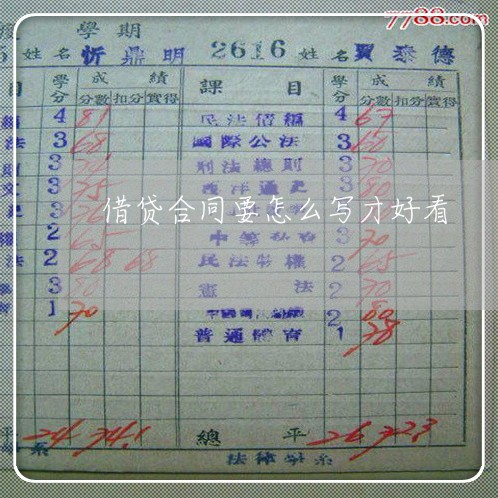 7788.com
學期
5 姓名 忻鼎明 2616 姓名 賈泰德
目 學分 成績 課目 學分 成績
分數 扣分 實得 分數 扣分 實得
4 81 民法債編 4 67
法 3 68 國際公法 3 60
則 3 刑法總則 3 70
3 75 西洋通史 3 80
3
借贷合同要怎么写才好看
2 65 3 70
法 2 68 68 民法物權 2 65
3 80 憲法 2 70
育 1 70 2 80
普通體育 1 78
平 24 74.1 總平 26 72.3
系 法律學系